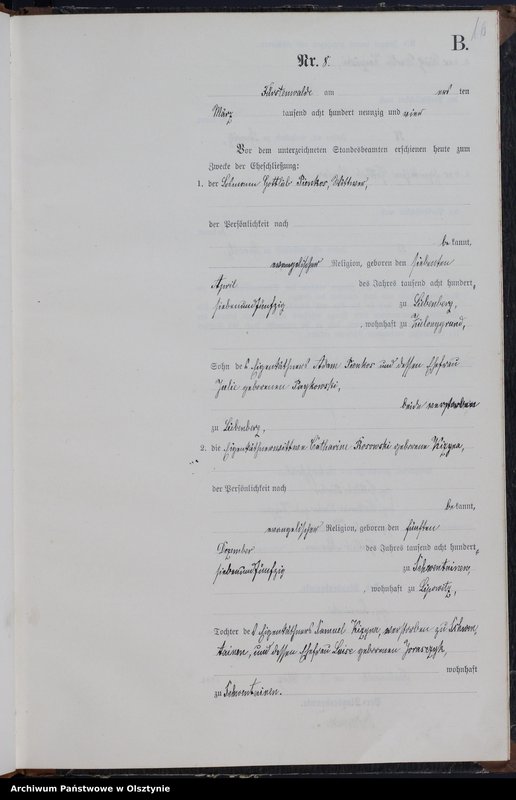 16
B.
Nr. 8.
Fürstenwalde am ersten
März tausend acht hundert neunzig und vier
Vor dem unterzeichneten Standesbeamten erschienen heute zum
Zwecke der Eheschließung:
1. der Losmann Gottlieb Wittwer,
der Persönlichkeit nach
bekannt,
evangelischer Religion, geboren den siebenten
April des Jahres tausend acht hundert
siebenundfünfzig zu Liebenberg,
, wohnhaft zu
Sohn des Eigenthümers Adam und dessen Ehefrau
Julie geborenen
beide verstorben
zu Liebenberg,
2. die Eigenthümerwittwe Catharine geborene
der Persönlichkeit nach
bekannt,
evangelischer Religion, geboren den fünften
Dezember des Jahres tausend acht hundert
siebenundfünfzig zu Schwentainen,
, wohnhaft zu Lipowitz,
Tochter des Eigenthümers Samuel verstorben zu Schwen,
tainen, und dessen Ehefrau Luise geborenen
wohnhaft
zu Schwentainen.
Archiwum Państwowe w Olsztynie